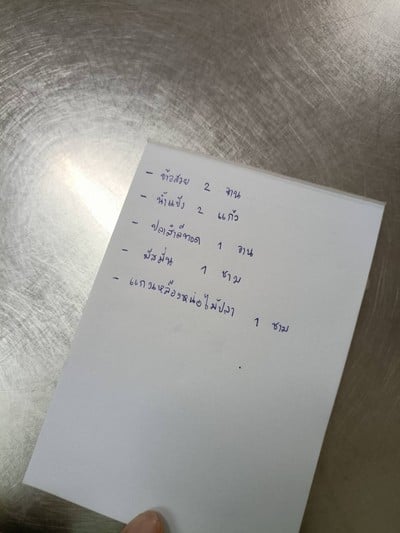 - ข้าวสวย 2 จาน
- น้ำแข็ง 2 แก้ว
- ปลาสำลีทอด 1 จาน
- มัสมั่น 1 ชาม
- แกงเหลืองหน่อไม้ปลา 1 ชาม